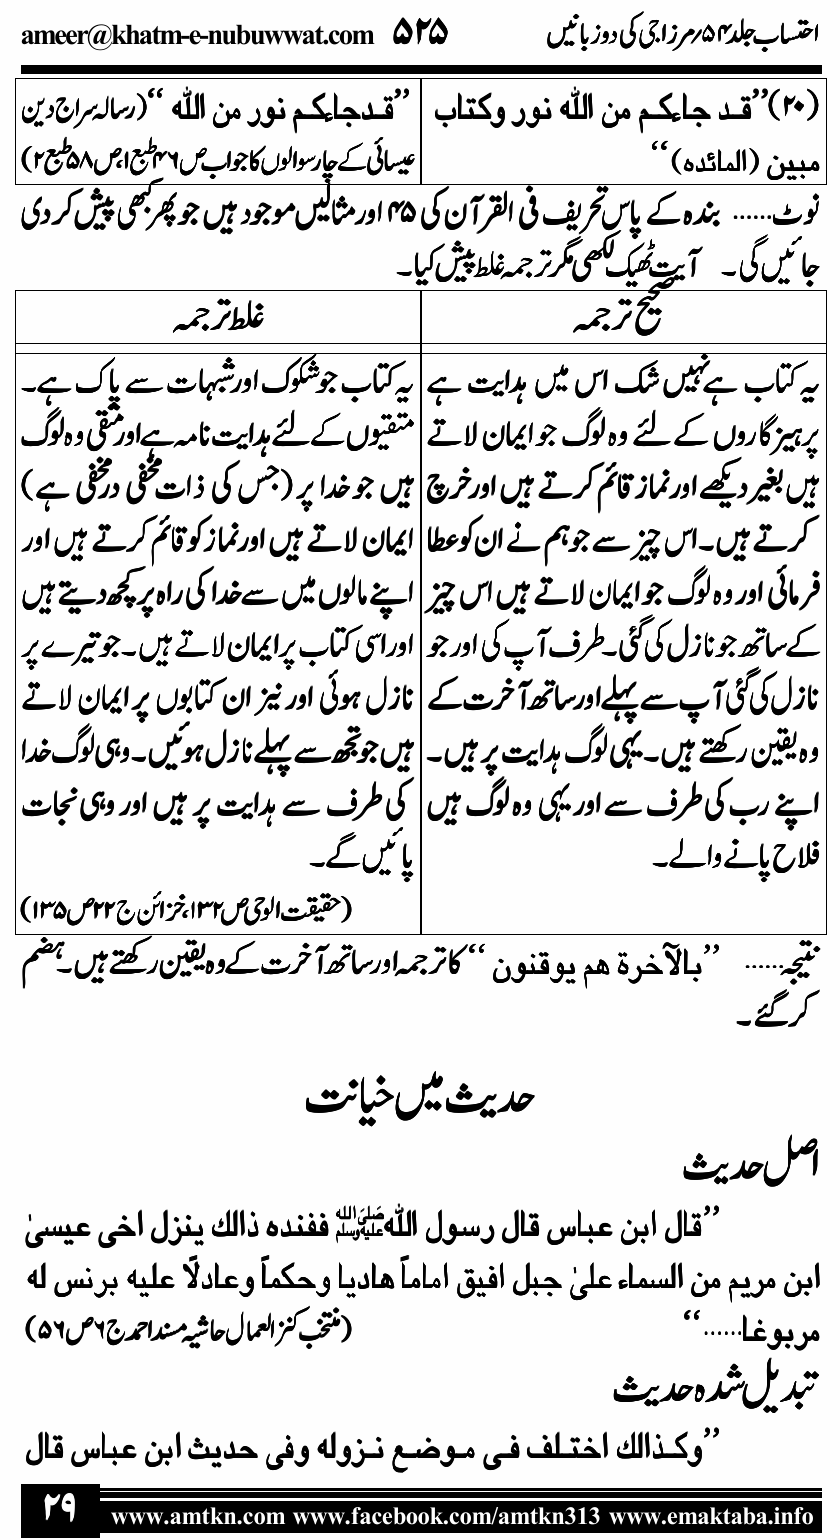 احتساب جلد ۵۴؍مرزا جی کی دو زبانیں ۵۲۵ ameer@khatm-e-nubuwwat.com
(۲۰)’’قد جاءكم من اللّٰه نور وكتاب
مبين (المائده)‘‘
’’قدجاءكم نور من اللّٰه ‘‘ (رسالہ سراج دین
عیسائی کے چار سوالوں کا جواب ص۴۶ طبع۱، ص۵۸ طبع۲)
نوٹ...... بندہ کے پاس تحریف فی القرآن کی ۴۵ اور مثالیں موجود ہیں جو پھر کبھی پیش کر دی
جائیں گی۔ آیت ٹھیک لکھی مگر ترجمہ غلط پیش کیا۔
صحیح ترجمہ
یہ کتاب ہے نہیں شک اس میں ہدایت ہے
پرہیزگاروں کے لئے وہ لوگ جو ایمان لاتے
ہیں بغیر دیکھے اور نماز قائم کرتے ہیں اور خرچ
کرتے ہیں۔ اس چیز سے جو ہم نے ان کو عطا
فرمائی اور وہ لوگ جو ایمان لاتے ہیں اس چیز
کے ساتھ جو نازل کی گئی۔ طرف آپ کی اور جو
نازل کی گئی آپ سے پہلے اور ساتھ آخرت کے
وہ یقین رکھتے ہیں۔ یہی لوگ ہدایت پر ہیں۔
اپنے رب کی طرف سے اور یہی وہ لوگ ہیں
فلاح پانے والے۔
غلط ترجمہ
یہ کتاب جو شکوک اور شبہات سے پاک ہے۔
متقیوں کے لئے ہدایت نامہ ہے اور متقی وہ لوگ
ہیں جو خدا پر (جس کی ذات مخفی در مخفی ہے)
ایمان لاتے ہیں اور نماز کو قائم کرتے ہیں اور
اپنے مالوں میں سے خدا کی راہ پر کچھ دیتے ہیں
اور اسی کتاب پر ایمان لاتے ہیں۔ جو تیرے پر
نازل ہوئی اور نیز ان کتابوں پر ایمان لاتے
ہیں جو تجھ سے پہلے نازل ہوئیں۔ وہی لوگ خدا
کی طرف سے ہدایت پر ہیں اور وہی نجات
پائیں گے۔
(حقیقت الوحی ص۱۳۲، خزائن ج۲۲ ص۱۳۵)
نتیجہ...... ’’بالآخرة هم يوقنون ‘‘ کا ترجمہ اور ساتھ آخرت کے وہ یقین رکھتے ہیں۔ ہضم
کر گئے۔
حدیث میں خیانت
اصل حدیث
’’قال ابن عباس قال رسول اللّٰهﷺ ففنده ذالك ينزل اخى عيسىٰ
ابن مريم من السماء علىٰ جبل افيق اماماً هاديا وحكماً وعادلًا عليه برنس له
مربوغا......‘‘ (منتخب کنز العمال حاشیہ مسند احمد ج۶ ص۵۶)
تبدیل شدہ حدیث
’’وكذالك اختلف فى موضع نزوله وفى حديث ابن عباس قال
۲۹ www.amtkn.com www.facebook.com/amtkn313 www.emaktaba.info